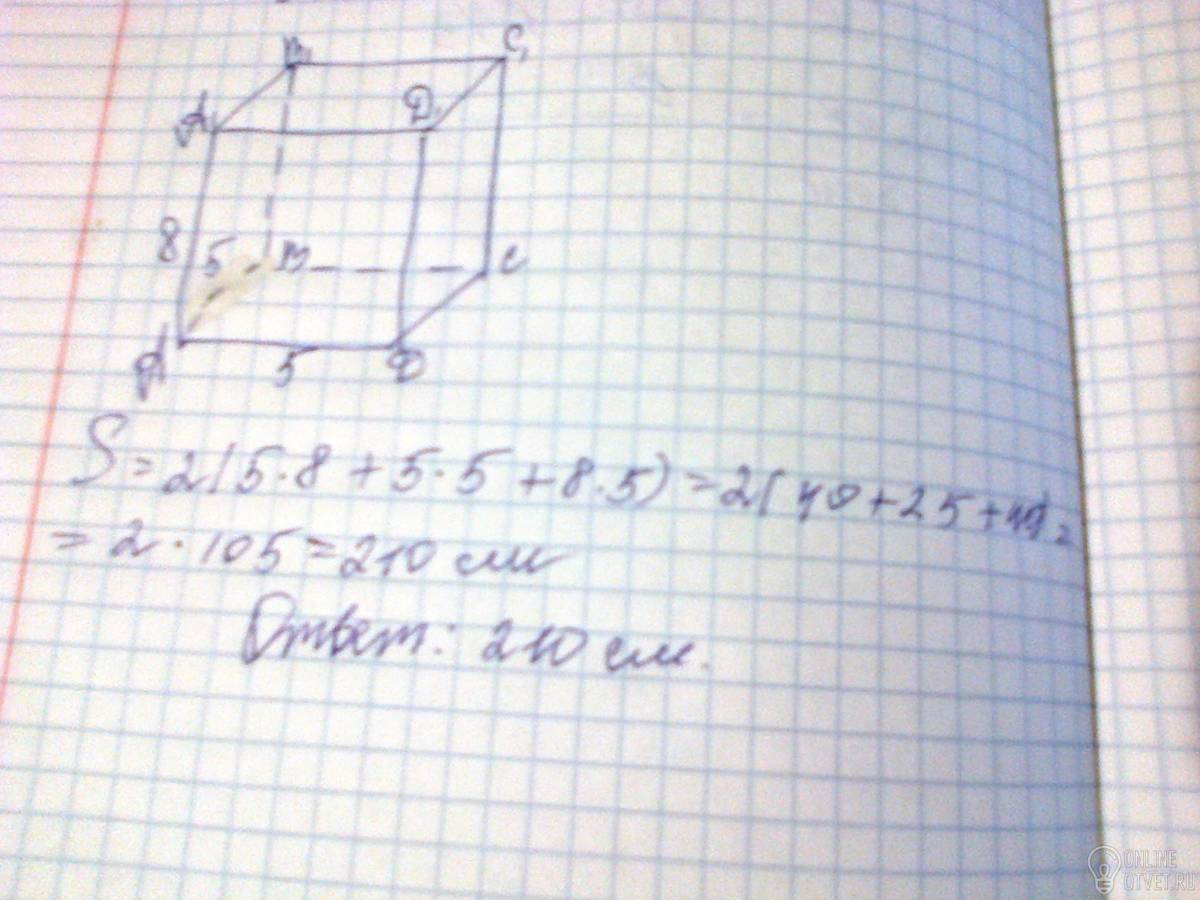 B₁ C₁
A₁ D₁
8 5 B C
A 5 D
S = 2(5·8 + 5·5 + 8·5) = 2(40+25+40)=
= 2·105 = 210 см
Ответ: 210 см.
ONLINE
OTVET.RU